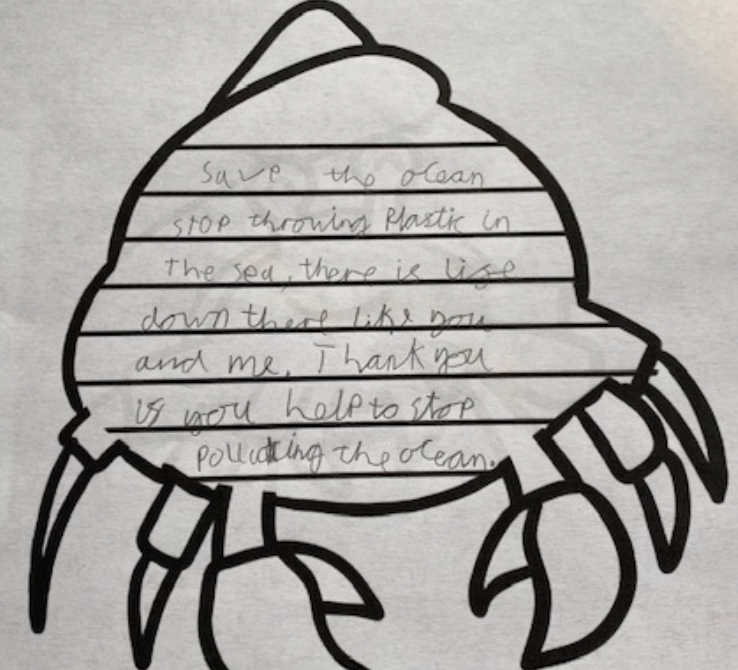 Save the ocean
stop throwing Plastic in
The sea, there is life
down there like you
and me. Thank you
if you help to stop
polluting the ocean.